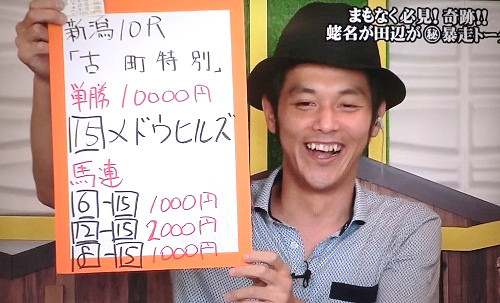 まもなく必見！奇跡!!
蛯名が田辺が㊙暴走トーク
新潟10R
「古町特別」
単勝 10000円
15 メドウヒルズ
馬連
6-15 1000円
12-15 2000円
15 1000円